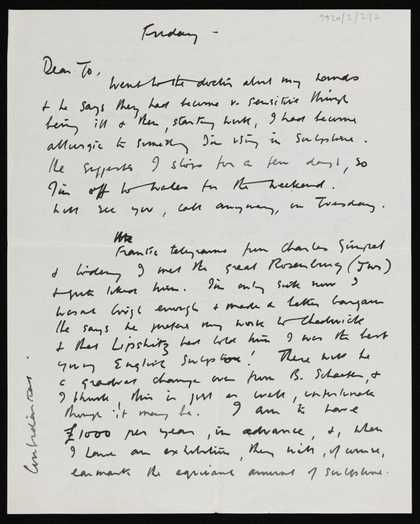 9920/2/2/2
Friday -
Dear To,
Went to the doctor about my hands
& he says they had become v. sensitive through
being ill & then, starting work, I had become
allergic to something I'm using in sculpture.
He suggests I stop for a few days, so
I'm off to Wales for the weekend.
Will see you, call anyway, on Tuesday.
Frantic telegrams from Charles Gimpel
& I met the great Rosenberg (Jws)
& quite liked him. I'm only sick now I
wasn't tough enough & made a better bargain
He says he prefers my work to Chadwick
& that Lipshitz had told him I was the best
young English Sculptor! There will be
a gradual change over from B. Schaefer, &
I think, this is just as well, unfortunate
though it may be. I am to have
£1000 per year, in advance, &, when
I have an exhibition, they will, of course,
earmark the equivalent amount of sculpture.
Confidential.